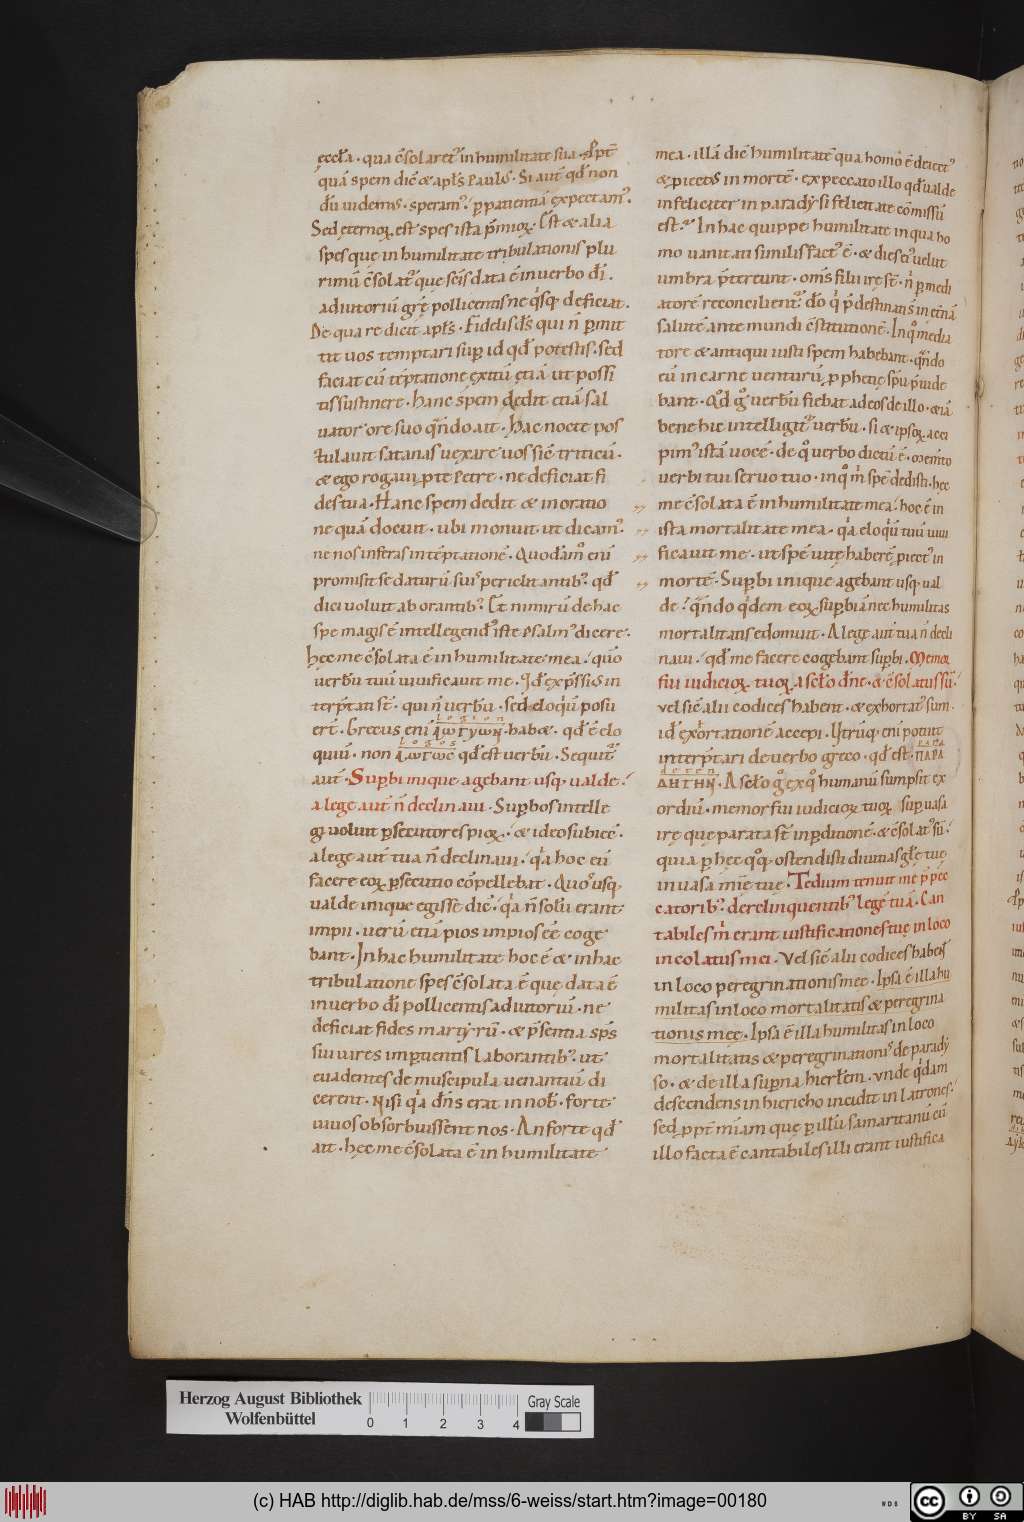 ęccła · qua c̄solaret᷒ in humilitate sua · Ppt̄
quā spem dic̄ & apłs Paulus · Si aut̄ qđ non
đū uidemus · speram᷒ / p patientiā expectam᷒ ·
Sed ęternoꝝ est spes ista p̄mioꝝ · Est & alia
spes quę in humilitate tribulationis plu
rimū c̄solat᷒ quę sc̄is data ē in uerbo dī ·
adiutoriū gr̄ę pollicentis ne qsq deficiat ·
De qua re dicit apłs · Fidelis ds̄ qui n̄ pmit
tit uos temptari sup id qđ potestis · sed
faciat cū tēptatione exitū etiā ut possi
tis sustinere · Hanc spem dedit etiā sal
uator ore suo qn̄do ait · Hac nocte pos
tulauit satanas uexare uos sic̄ triticū ·
& ego rogaui p te Petre · ne deficiat fi
des tua · Hanc spem dedit & in oratio
ne quā docuit · ubi monuit ut dicam᷒ ·
ne nos inferas in tēptationē · Quodām eni
promisit se daturū suis periclitantib᷒ · qđ
dici uoluit ab orantib᷒ · Et nimirū de hac
spe magis ē intellegend᷒ iste psalm᷒ dicere ·
hęc me c̄solata ē in humilitate mea / quō
uerbū tuū uiuificauit me · Id expssius in
terptati st̄ · qui n̄ uerbū · sed eloqiū posu
logion
ert̄ · Grecus eni ΛωΓΥωΝ · habæ · qđ ē elo
logos
quiū · non ΛωΓωC qđ est uerbū · Sequit᷒
aut̄ · Supbi inique agebant usq · ualde /
a lege aut̄ n̄ declinaui · Supbos intelle
gi uoluit psecutores pioꝝ / & ideo subiec̄ ·
a lege aut̄ tua n̄ declinaui / qa hoc eū
facere eoꝝ psecutio cōpellebat · Quo usq,
ualde inique egisse dic̄ · qa n̄ solū erant
impii · uerū etiā pios impios ee coge
bant · In hac humilitate hoc ē & in hac
tribulatione spes c̄solata ē quę data ē
in uerbo dī pollicentis adiutoriū · ne
deficiat fides martyrū · & p̄sentia sps
sui uires impertientis laborantib᷒ · ut
euadentes de muscipula uenantiū di
cerent · Nisi qa dns̄ erat in nob̄ · forte
uiuos obsorbuissent nos · An forte qđ
ait · hęc me c̄solata ē in humilitate
mea · illā dic̄ humilitatē qua homo ē deiect᷒
& piectus in mortē · ex peccato illo qđ ualde
infeliciter in paradysi felicitate cōmissū
est · In hac quippe humilitate in qua ho
mo uanitati similis fact᷒ ē · & dies ei᷒ uelut
umbra p̄tereunt · oms̄ filii irę st̄ · n̄ p medi
atorē reconcilient᷒ · dō q p̄destinans in et̄nā
salutē ante mundi c̄stitutionē · In qo media
tore & antiqui iusti spem habebant · qn̄do
eū in carne uenturū pphetię spū puide
bant · Qd g uerbū fiebat ad eos de illo · & iā
bene hic intelligit᷒ uerbū · si & ipsoꝝ acci
pim᷒ istā uocē · de qo uerbo dictū ē · Memto
uerbi tui seruo tuo · in qo m spē dedisti · hęc
me c̄solata ē in humilitate mea / hoc ē in
ista mortalitate mea · qa eloqū tuū uiui
ficauit me · ut spē uitę haberē piect᷒ in
mortē · Supbi inique agebant usq · ual
de / qn̄do qdem eoꝝ supbiā nec humilitas
mortalitatis edomuit · A lege aut̄ tua n̄ decli
naui / qđ me facere cogebant supbi · Memor
fui iudicioꝝ tuoꝝ a scło dn̄e · & c̄solatus sū ·
uel sic̄ alii codices habent · & exhortat᷒ sum ·
id exhortationē accepi · Utrūq · eni potuit
PARA
interptari de uerbo greco · qđ est · ΠΑΡΑ
ΔΗΤΗΝ · A scło g ex qo humanū sumpsit ex
ordiū · memor fui iudicioꝝ tuoꝝ sup uasa
irę que parata st̄ in pditionē · & c̄solat᷒ sū /
quia p hęc qoq, ostendisti diuitias głę tuę
in uasa mię tuę · Tedium tenuit me p pec
catorib᷒ · derelinquentib᷒ legē tuā · Can
tabiles m erant iustificationes tuę in loco
incolatus mei · Vel sic̄ alii codices habent
in loco peregrinationis meę · Ipsa ē illa hu
militas in loco mortalitatis & peregrina
tionis meę · Ipsa ē illa humilitas in loco
mortalitatis & peregrinationis de parady
so · & de illa supna hierłem · Vnde qdam
descendens in hiericho incidit in latrones ·
Sed ppt̄ mīam quę p illū samaritanū cū
illo facta ē cantabiles illi erant iustifica
Herzog August Bibliothek
Wolfenbüttel
0 1 2 3 4
Gray Scale
(c) HAB http://diglib.hab.de/mss/6-weiss/start.htm?image=00180
WDB
cc BY SA